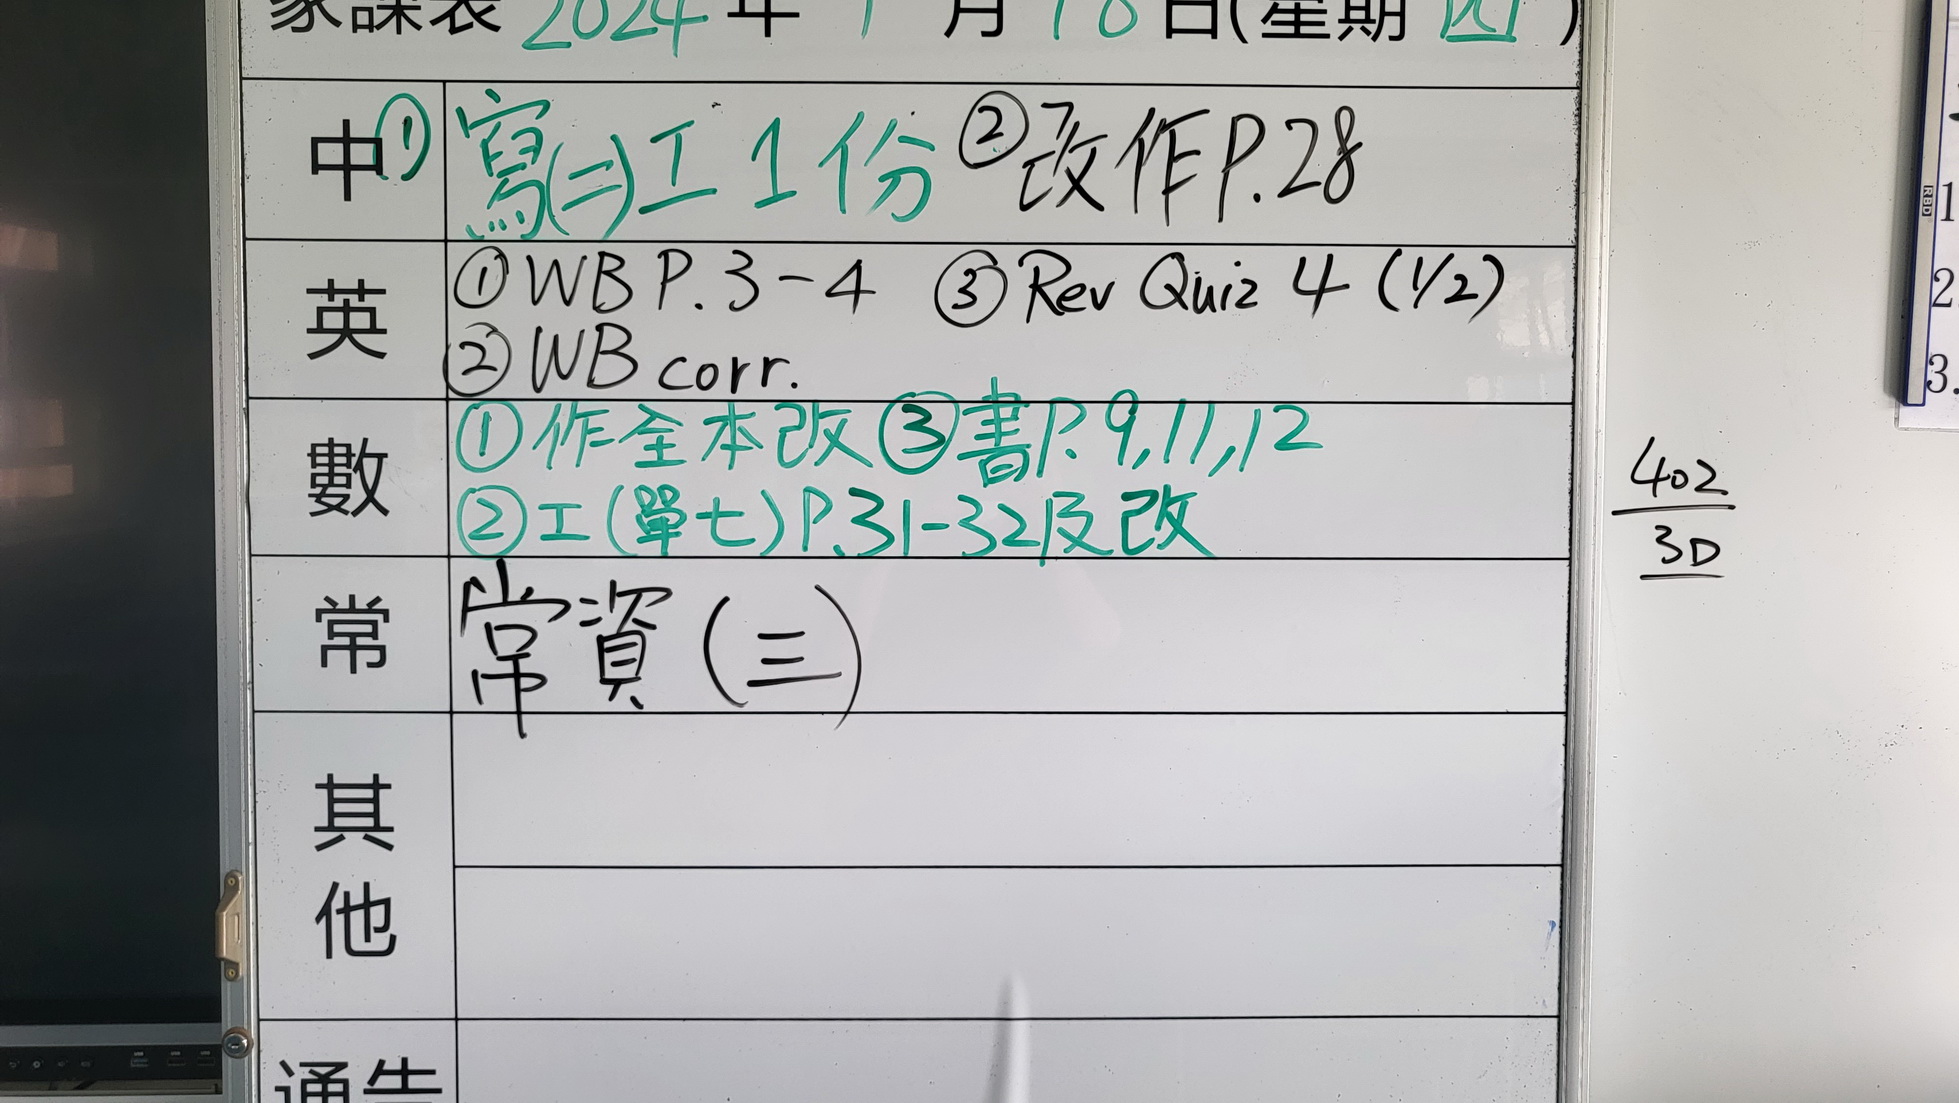 家課表 2024 年 1 月 18 日(星期 四 )
中 ① 寫(二)工 1 份 ② 改作 P.28
英 ① WB P. 3-4 ③ Rev Quiz 4 (1/2)
② WB corr.
數 ① 作全本改 ③ 書P. 9,11,12
② 工(單七) P.31-32及改
常 常資(三)
其他
通告
402
3D
RBD
1
2
3.